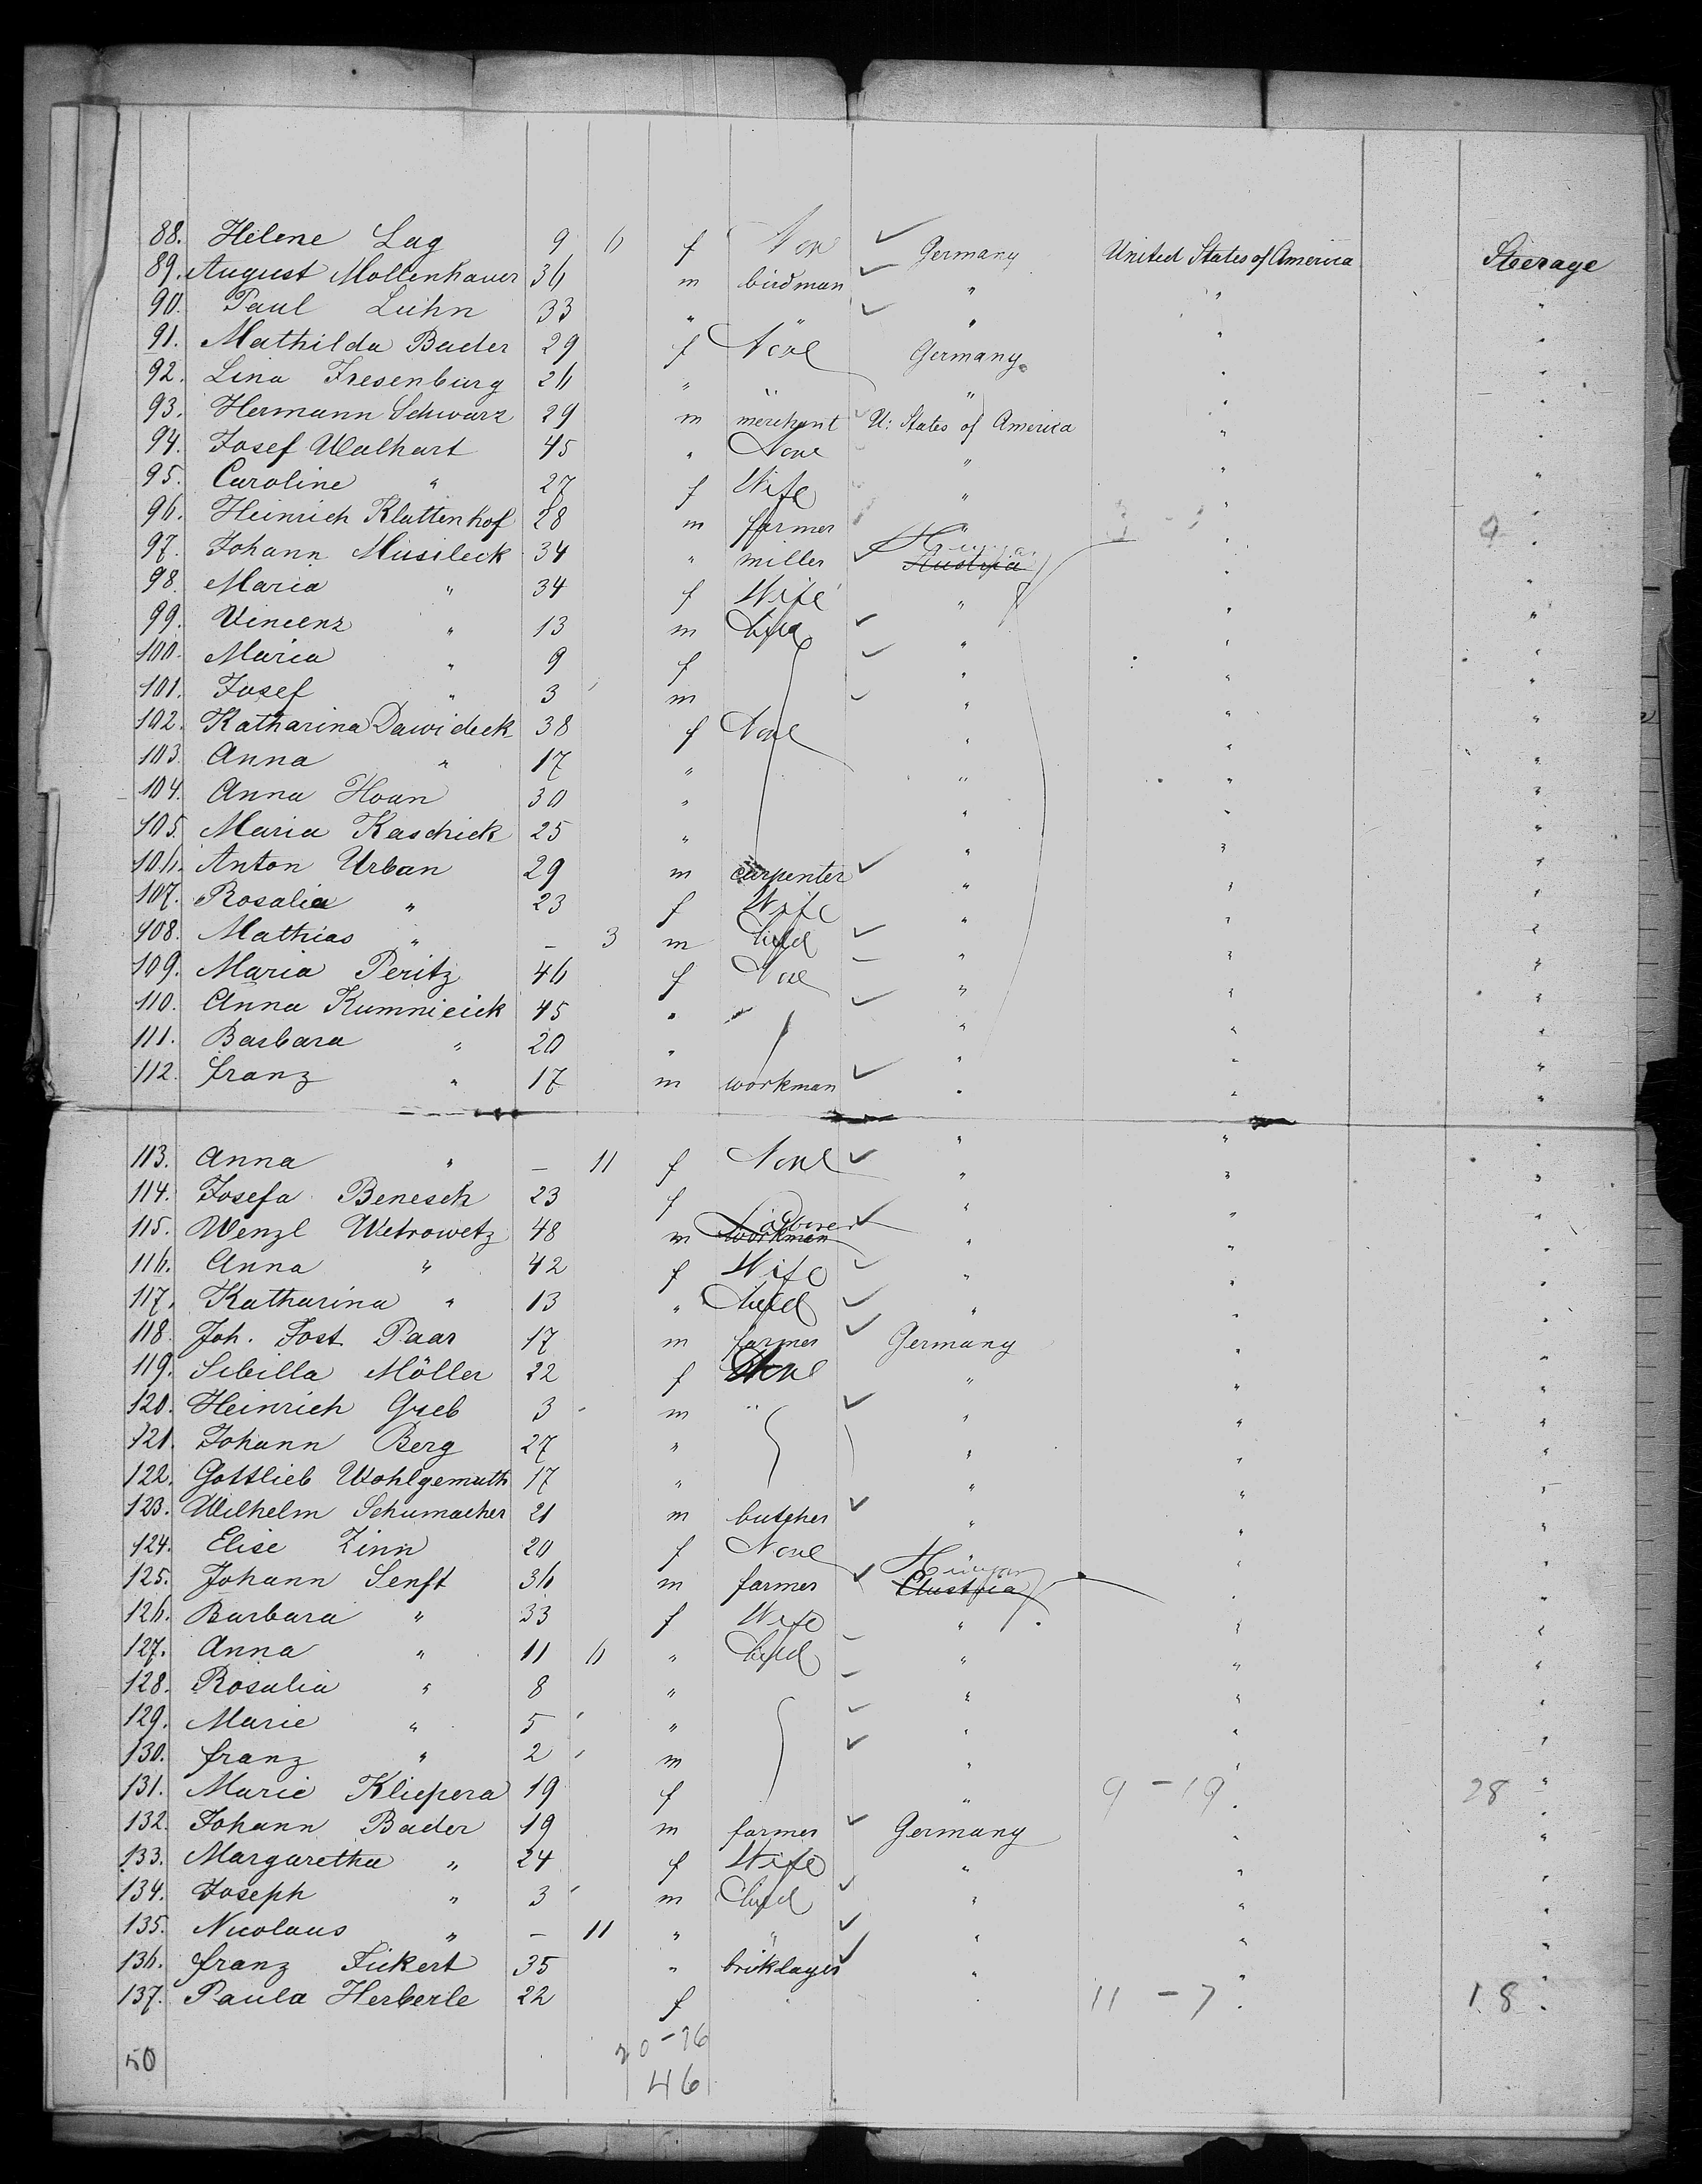 88. Helene Lag 9 6 f Non Germany United States of America Steerage
89. August Mollenhauer 36 m birdman " " "
90. Paul Lühn 33 " " " " "
91. Mathilda Bader 29 f None Germany " "
92. Lina Fresenburg 26 " " " " "
93. Hermann Schwarz 29 m merchant U: States of America " "
94. Josef Walhart 45 " None " " "
95. Caroline " 27 f Wife " " "
96. Heinrich Klattenhof 28 m farmer " " 9 "
97. Johann Musileck 34 " miller Hungar Austria " "
98. Maria " 34 f Wife " " "
99. Vincenz " 13 m Child " " "
100. Maria " 9 f " " "
101. Josef " 3 m " " "
102. Katharina Dawideck 38 f None " " "
103. Anna " 17 " " " "
104. Anna Hoan 30 " " " "
105. Maria Kaschick 25 " " " "
106. Anton Urban 29 m carpenter " " "
107. Rosalia " 23 f Wife " " "
108. Mathias " - 3 m Child " " "
109. Maria Peritz 46 f None " " "
110. Anna Kumnieick 45 " " " " "
111. Barbara " 20 " " " "
112. franz " 17 m workman " " "
113. Anna " - 11 f None " " "
114. Josefa Benesch 23 f " " "
115. Wenzl Wetrowetz 48 m Laborer workman " " "
116. Anna " 42 f Wife " " "
117. Katharina " 13 " Child " " "
118. Joh. Jost Paar 17 m farmer Germany " "
119. Sibilla Möller 22 f None " " "
120. Heinrich Greb 3 m " " " "
121. Johann Berg 27 " " " "
122. Gottlieb Wohlgemuth 17 " " " "
123. Wilhelm Schumacher 21 m butcher " " "
124. Elise Zinn 20 f None " "
125. Johann Senft 36 m farmer Hungar Austria " "
126. Barbara " 33 f Wife " " "
127. Anna " 11 6 " Child " " "
128. Rosalia " 8 " " " "
129. Marie " 5 " " " "
130. franz " 2 m " " "
131. Marie Kliepera 19 f " 9 - 19 " 28 "
132. Johann Bader 19 m farmer Germany " "
133. Margaretha " 24 f Wife " " "
134. Joseph " 3 m Child " " "
135. Nicolaus " - 11 " " " " "
136. franz Fickert 35 " briklayer " " "
137. Paula Herberle 22 f " 11 - 7 " 18 "
50 20-26
46